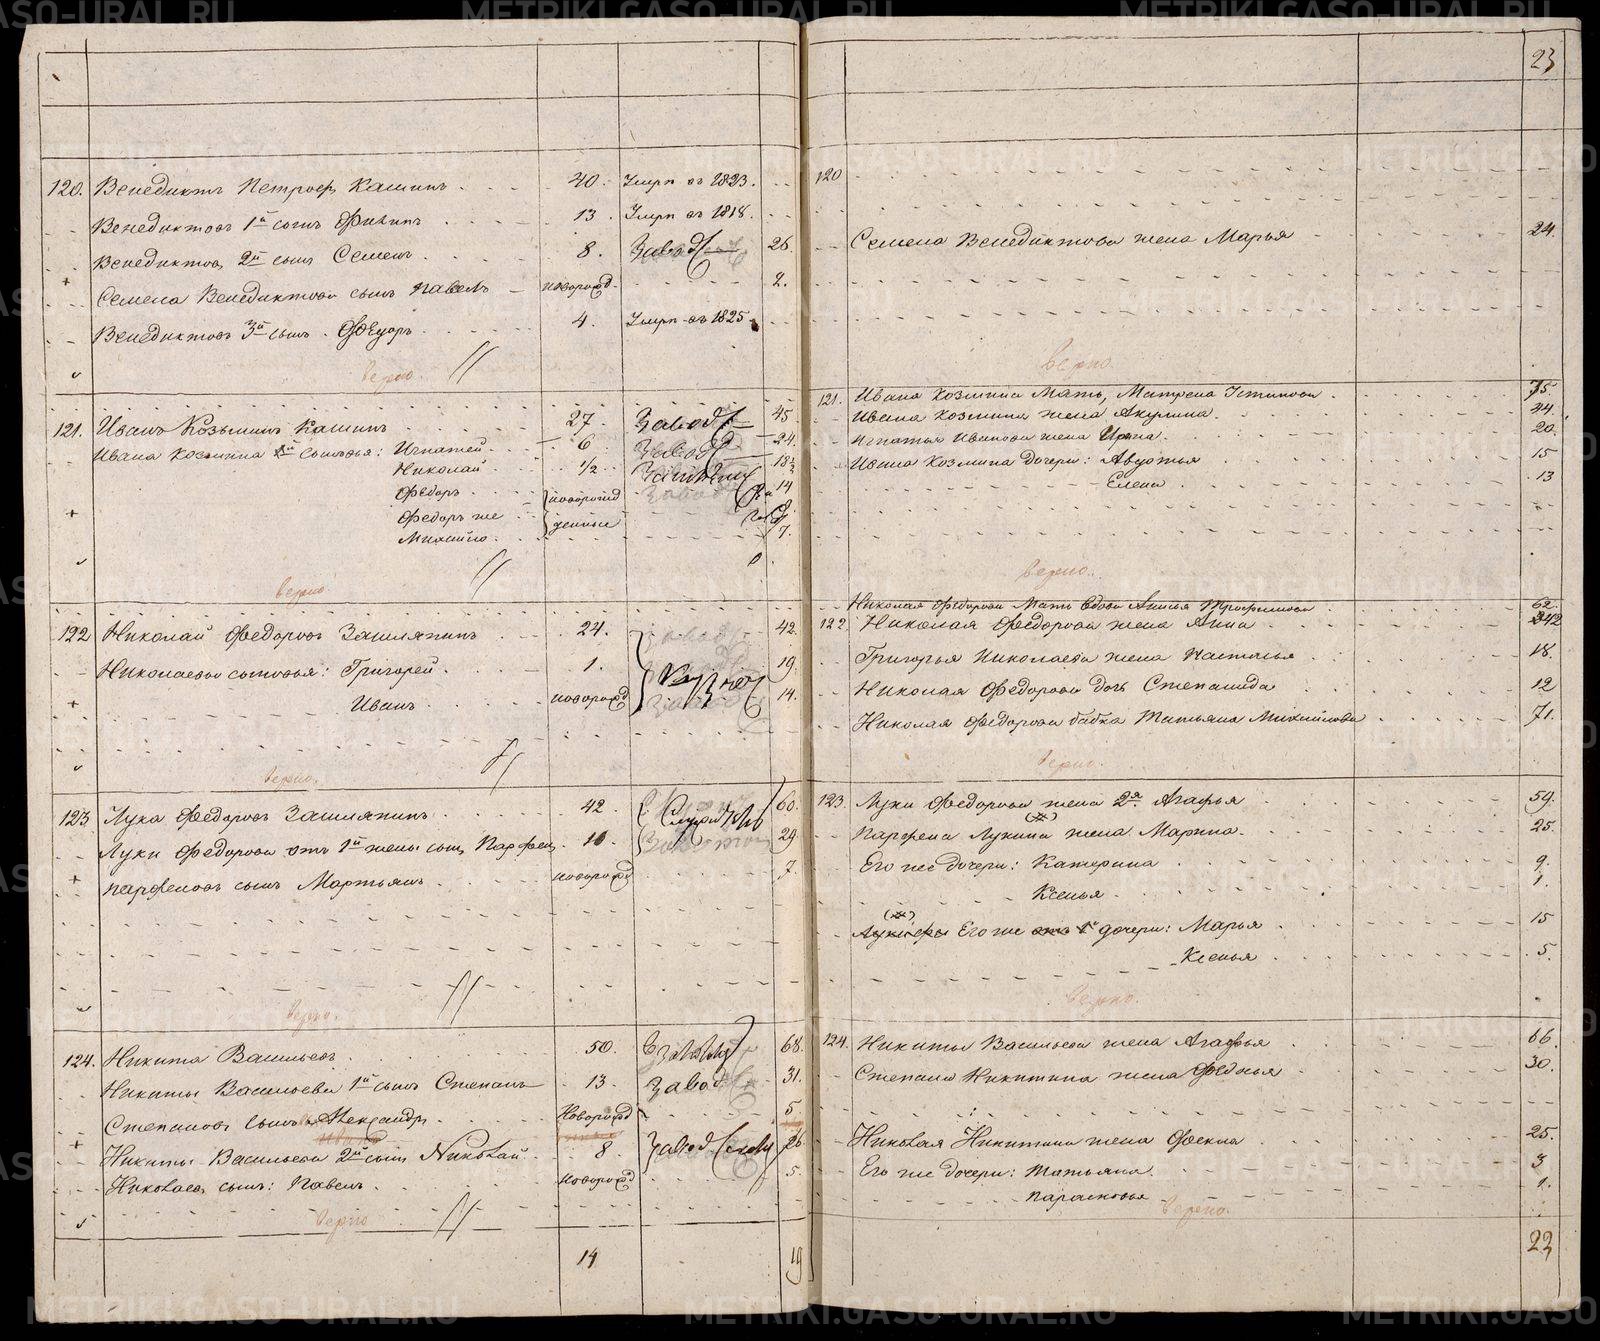 23
120. Венедиктъ Петровъ Кашинъ 40. Умръ въ 1823.
Венедиктовъ 1й сынъ Филипъ 13 Умръ въ 1818.
Венедиктовъ 2й сынъ Семенъ 8. Завод 26
Семена Венедиктова сынъ Павелъ новорожд. 2.
Венедиктовъ 3й сынъ Федоръ 4. Умръ въ 1825
верно.
121. Иванъ Козьминъ Кашинъ 27. Завод 45
Ивана Козмина сыновья: Игнатей 6 24.
Николай 1/2 18 1/2
Федоръ новорожденные 14
Федоръ же
Михайло 7.
верно
122 Николай Федоровъ Зашляпинъ 24. 42.
Николаевы сыновья: Григорей 1. 19.
Иванъ новорожд 14.
верно.
123 Лука Федоровъ Зашляпинъ 42. 60.
Луки Федорова отъ 1й жены сынъ Парфенъ 10 29
Парфеновъ сынъ Мартьянъ новорожд 7.
верно.
124. Никита Васильевъ 50. 68.
Никиты Васильева 1й сынъ Степанъ 13. Завод 31.
Степановъ сынъ Александръ Новорожд 5
Никиты Васильева 2й сынъ Николай 8 26
Николаевъ сынъ: Павелъ новорожд 5.
верно
14 19
120
Семена Венедиктова жена Марья 24.
верно.
121. Ивана Козмина Мать, Матрена Устинова 75.
Ивана Козмина жена Акулина. 44.
Игнатья Иванова жена Ирина. 20.
Ивана Козмина дочери: Авдотья 15
Елена 13
верно.
Николая Федорова Мать вдова Анисья Трофимова 62.
122. Николая Федорова жена Анна 42
Григорья Николаева жена Настасья 18.
Николая Федорова дочь Степанида 12
Николая Федорова бабка Татьяна Михайлова 71.
верно.
123. Луки Федорова жена 2я Агафья 59.
Парфена Лукина жена Марина. 25.
Его же дочери: Катерина 9.
Ксенья 1.
Его же дочери: Марья 15
Ксенья 5.
верно.
124. Никиты Васильева жена Агафья 66.
Степана Никитина жена Федосья 30.
Николая Никитина жена Фекла 25.
Его же дочери: Татьяна 3
Парасковья 1.
верно.
22
METRIKI.GASO-URAL.RU